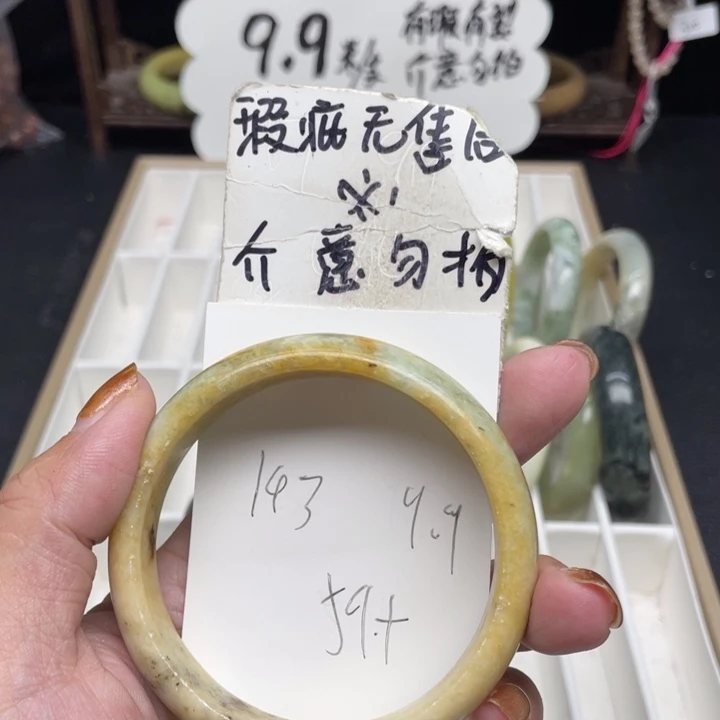 9.9元/条
有瑕有裂
介意勿拍
瑕疵无售后
介意勿拍
143
9.9
59.+